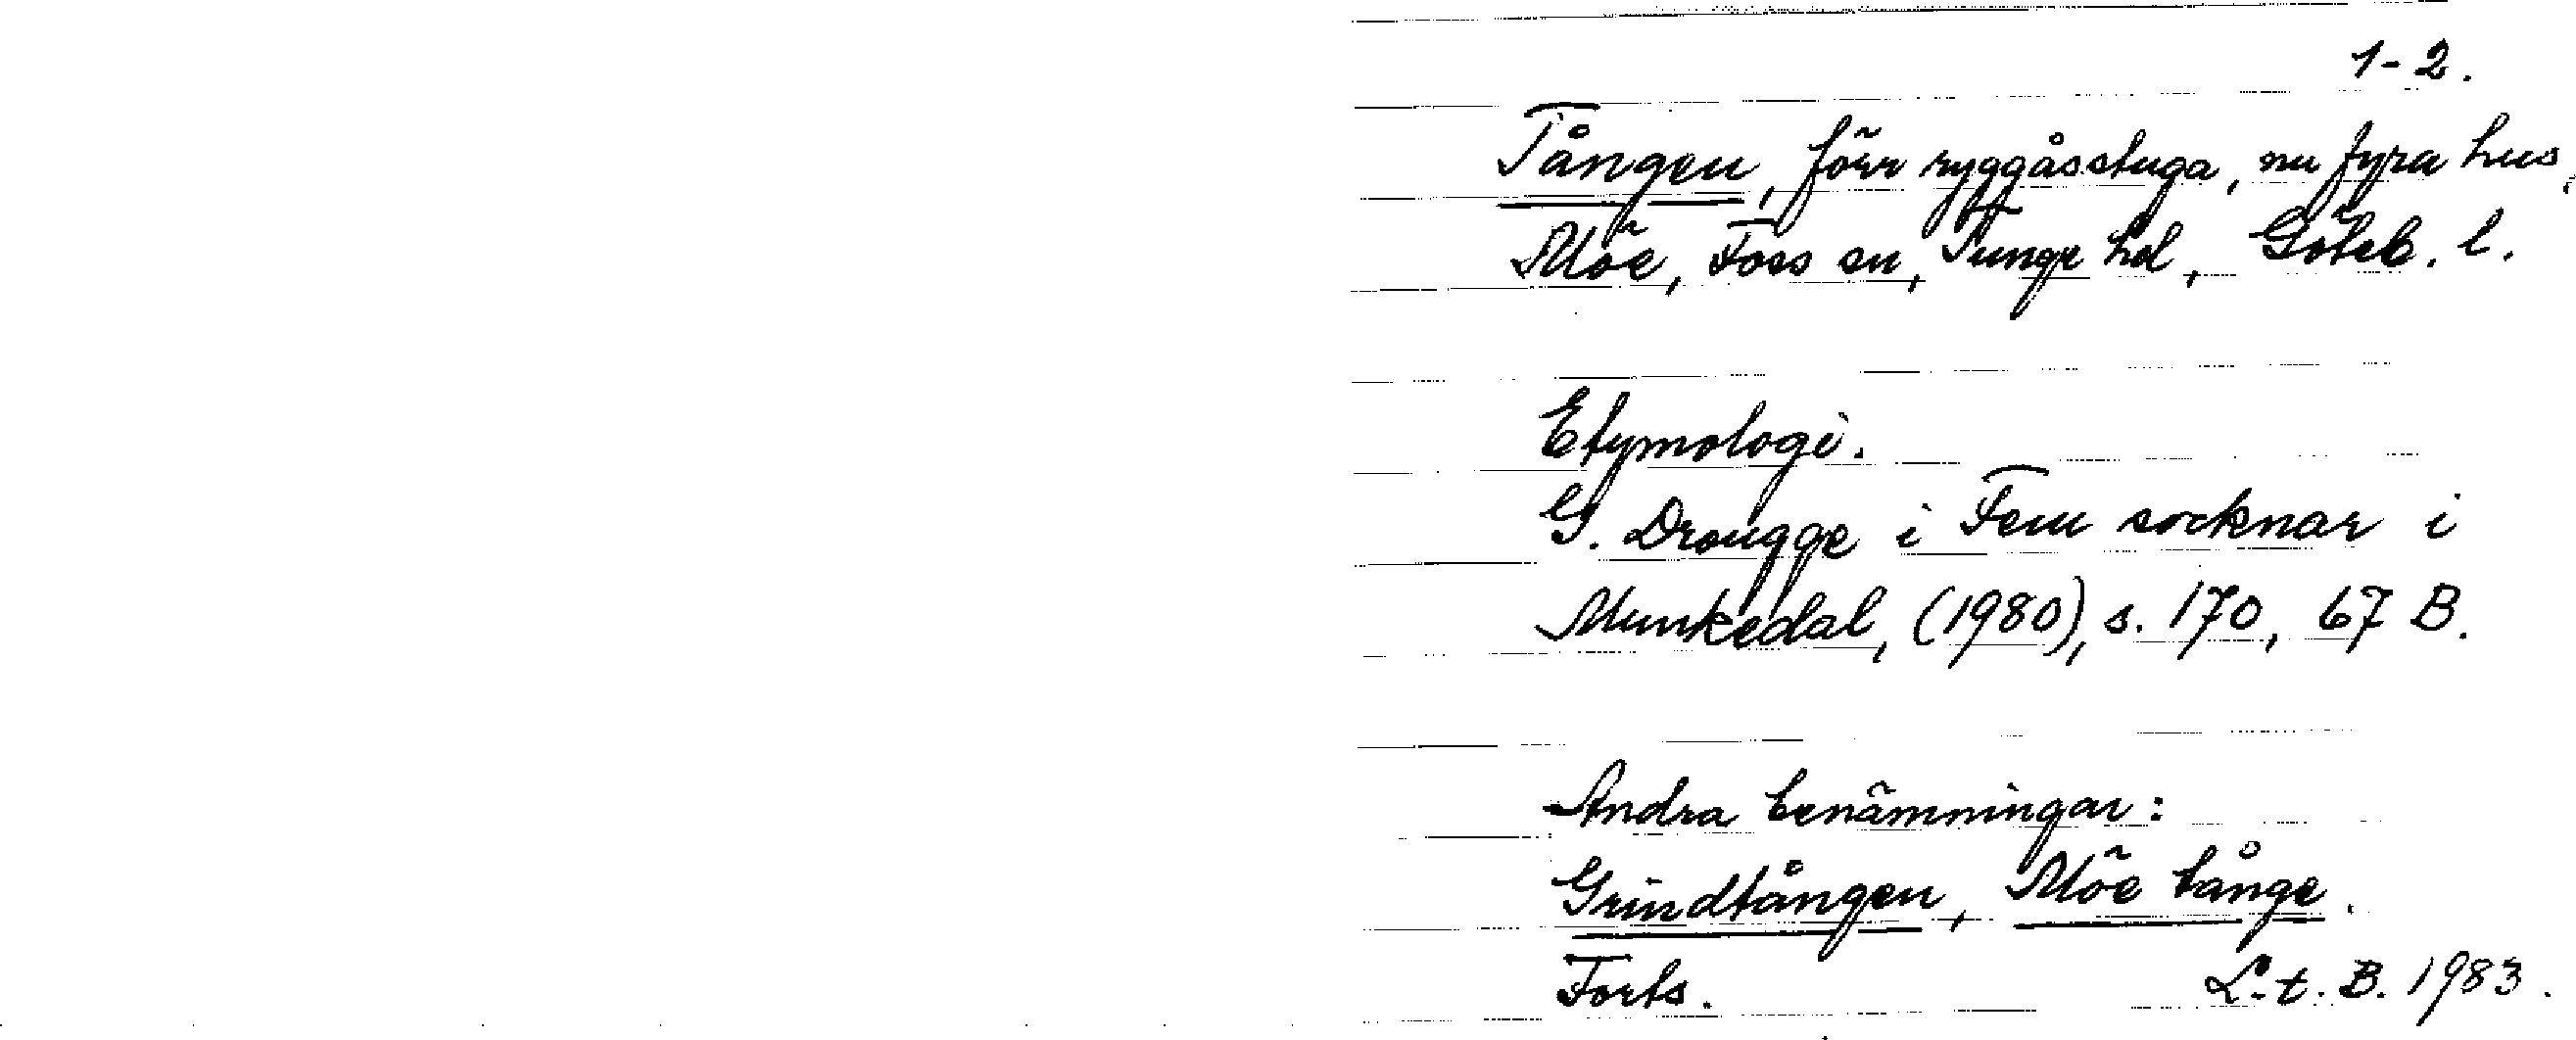 1-2.
Tången, förr ryggåsstuga, nu fyra hus,
Möe, Foss sn, Tunge hd, Göteb. l.
Etymologi.
G. Drougge i Fem socknar i
Munkedal, (1980), s. 170, 67 B.
Andra benämningar:
Grindtången, Möe tånge.
Forts. L. t. B. 1983.